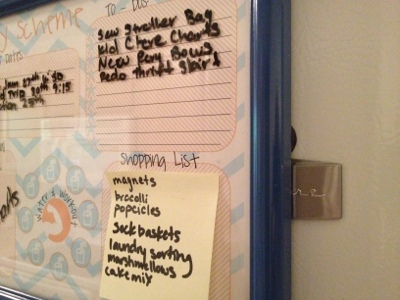 y scheme
TO - DOS
Sew Stroller Bag
Kid Chore Charts
New Pery Bows
Redo thrift Skirt
Shopping List
magnets
brocolli
popcicles
Sock baskets
laundry sorting
marshmellows
cake mix
water & workout